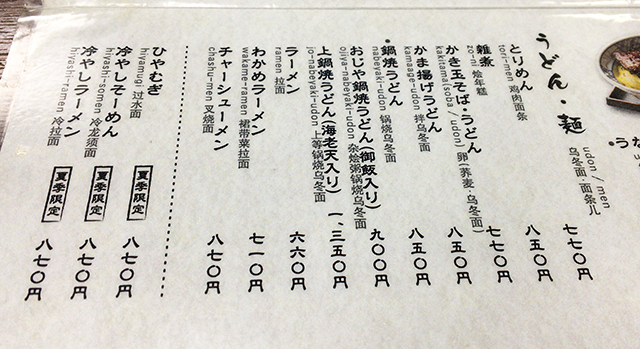 ・うな
うどん・麺
udon / men
乌冬面・面条儿
とりめん 七七〇円
tori-men 鸡肉面条
雑煮 八五〇円
zo-ni 烩年糕
かき玉そば・うどん 七七〇円
kakitama(soba / udon) 卵(荞麦・乌冬面)
かま揚げうどん 八五〇円
kamaage-udon 拌乌冬面
・鍋焼うどん 八五〇円
nabeyaki-udon 锅烧乌冬面
おじや鍋焼うどん(御飯入り) 九〇〇円
ojiya-nabeyaki-udon 杂烩粥锅烧乌冬面
上鍋焼うどん(海老天入り) 一、三五〇円
jo-nabeyaki-udon 上等锅烧乌冬面
ラーメン 六六〇円
ramen 拉面
わかめラーメン 七一〇円
wakame-ramen 裙带菜拉面
チャーシューメン 八七〇円
chashu-men 叉烧面
ひやむぎ 夏季限定 八七〇円
hiyamugi 过水面
冷やしそーめん 夏季限定 八七〇円
hiyashi-somen 冷龙须面
冷やしラーメン 夏季限定 八七〇円
hiyashi-ramen 冷拉面